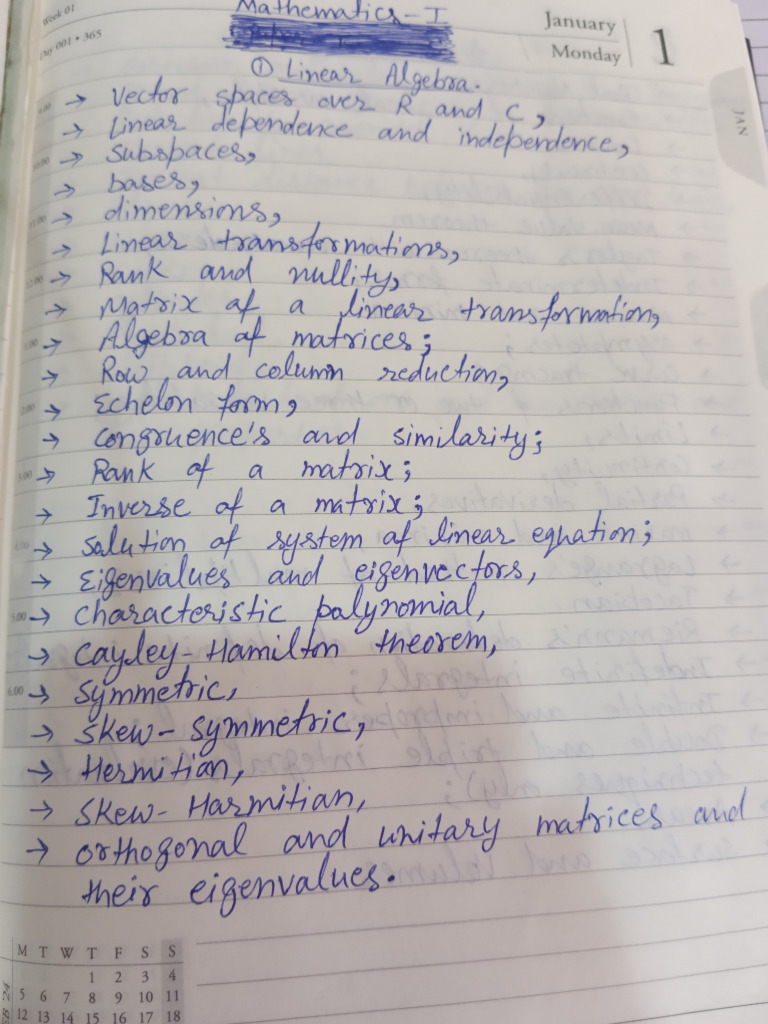 Week 01
Day 001 • 365
Mathematics-I
January
Monday
1
JAN
① Linear Algebra.
9.00 → Vector spaces over R and C,
→ Linear dependence and independence,
10.00 → Subspaces,
→ bases,
11.00 → dimensions,
→ Linear transformations,
12.00 → Rank and nullity,
→ Matrix of a linear transformation,
1.00 → Algebra of matrices;
→ Row and column reduction,
2.00 → Echelon form,
→ Congruence's and similarity;
3.00 → Rank of a matrix;
→ Inverse of a matrix;
4.00 → Solution of system of linear equation;
→ Eigenvalues and eigenvectors,
5.00 → characteristic polynomial,
→ Cayley-Hamilton theorem,
6.00 → Symmetric,
→ Skew-symmetric,
→ Hermitian,
→ Skew-Harmitian,
→ orthogonal and unitary matrices and
their eigenvalues.
M T W T F S S
1 2 3 4
5 6 7 8 9 10 11
12 13 14 15 16 17 18